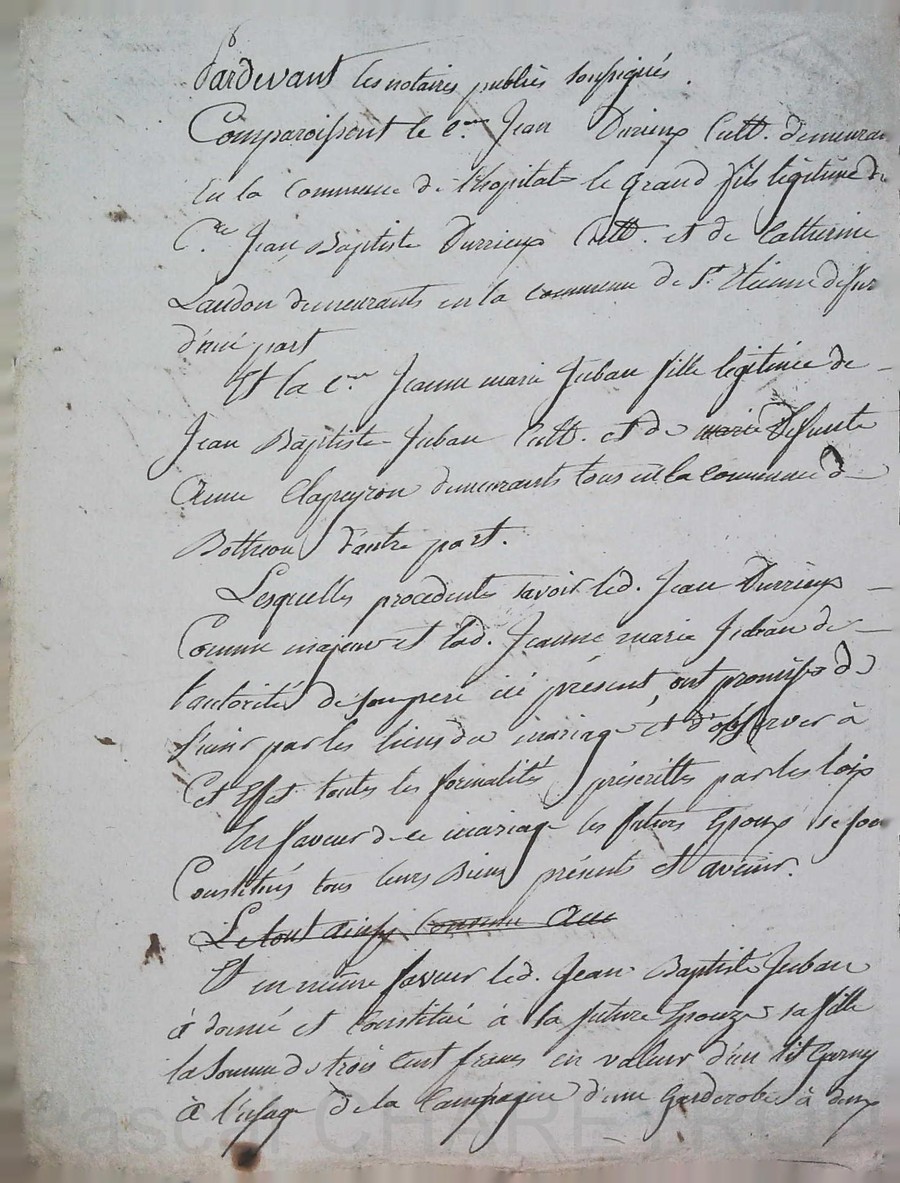 Pardevant les notaires publics soussignés.
Comparoissent le c.en Jean Durieux Cult. demeurant
En la Commune de l'hopital le grand fils légitime de
C.en Jean Baptiste Durrieux Cult. et de Catherine
Laudon demeurants en la commune de St. Etienne
d'une part
Et la c.ne Jeanne marie Juban fille légitime de
Jean Baptiste Juban Cult. et de marie Defunte
Anne Clapeyron demeurants tous en la commune de
Bothéon d'autre part.
Lesquelles procedents savoir led. Jean Durrieux
Comme majeur et lad. Jeanne marie Juban de
l'autorité de son pere ici présent, ont promis de
s'unir par les liens du mariage et d'observer à
Cet Effet toutes les formalités préscrittes par les loix
En faveur de ce mariage les futurs Epoux se son
Constitués tous leurs Biens présents et avenir.
Le tout ainsy Convenu
Et en même faveur led. Jean Baptiste Juban
à donné et Constitué à la future Epouze sa fille
la somme de trois Cent francs en valeur d'un lit Garny
à l'usage de la Campagne d'une Garderobe à deux
Pascal CHAREYRON